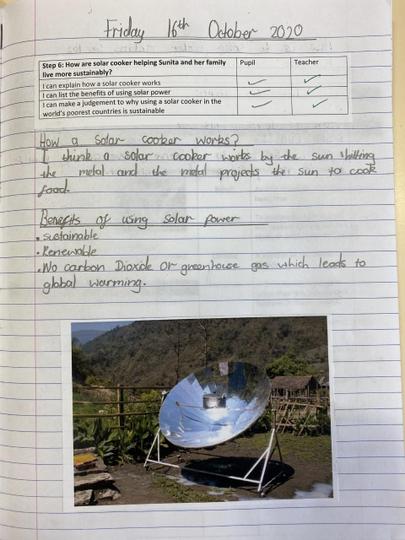 Friday 16th October 2020
Step 6: How are solar cooker helping Sunita and her family
live more sustainably?
Pupil
Teacher
I can explain how a solar cooker works
I can list the benefits of using solar power
I can make a judgement to why using a solar cooker in the
world's poorest countries is sustainable
How a Solar cooker works?
I think a solar cooker works by the sun hitting
the metal and the metal projects the sun to cook
food.
Benefits of using Solar power
• Sustainable
• Renewable
• No carbon Dioxide or greenhouse gas which leads to
global warming.